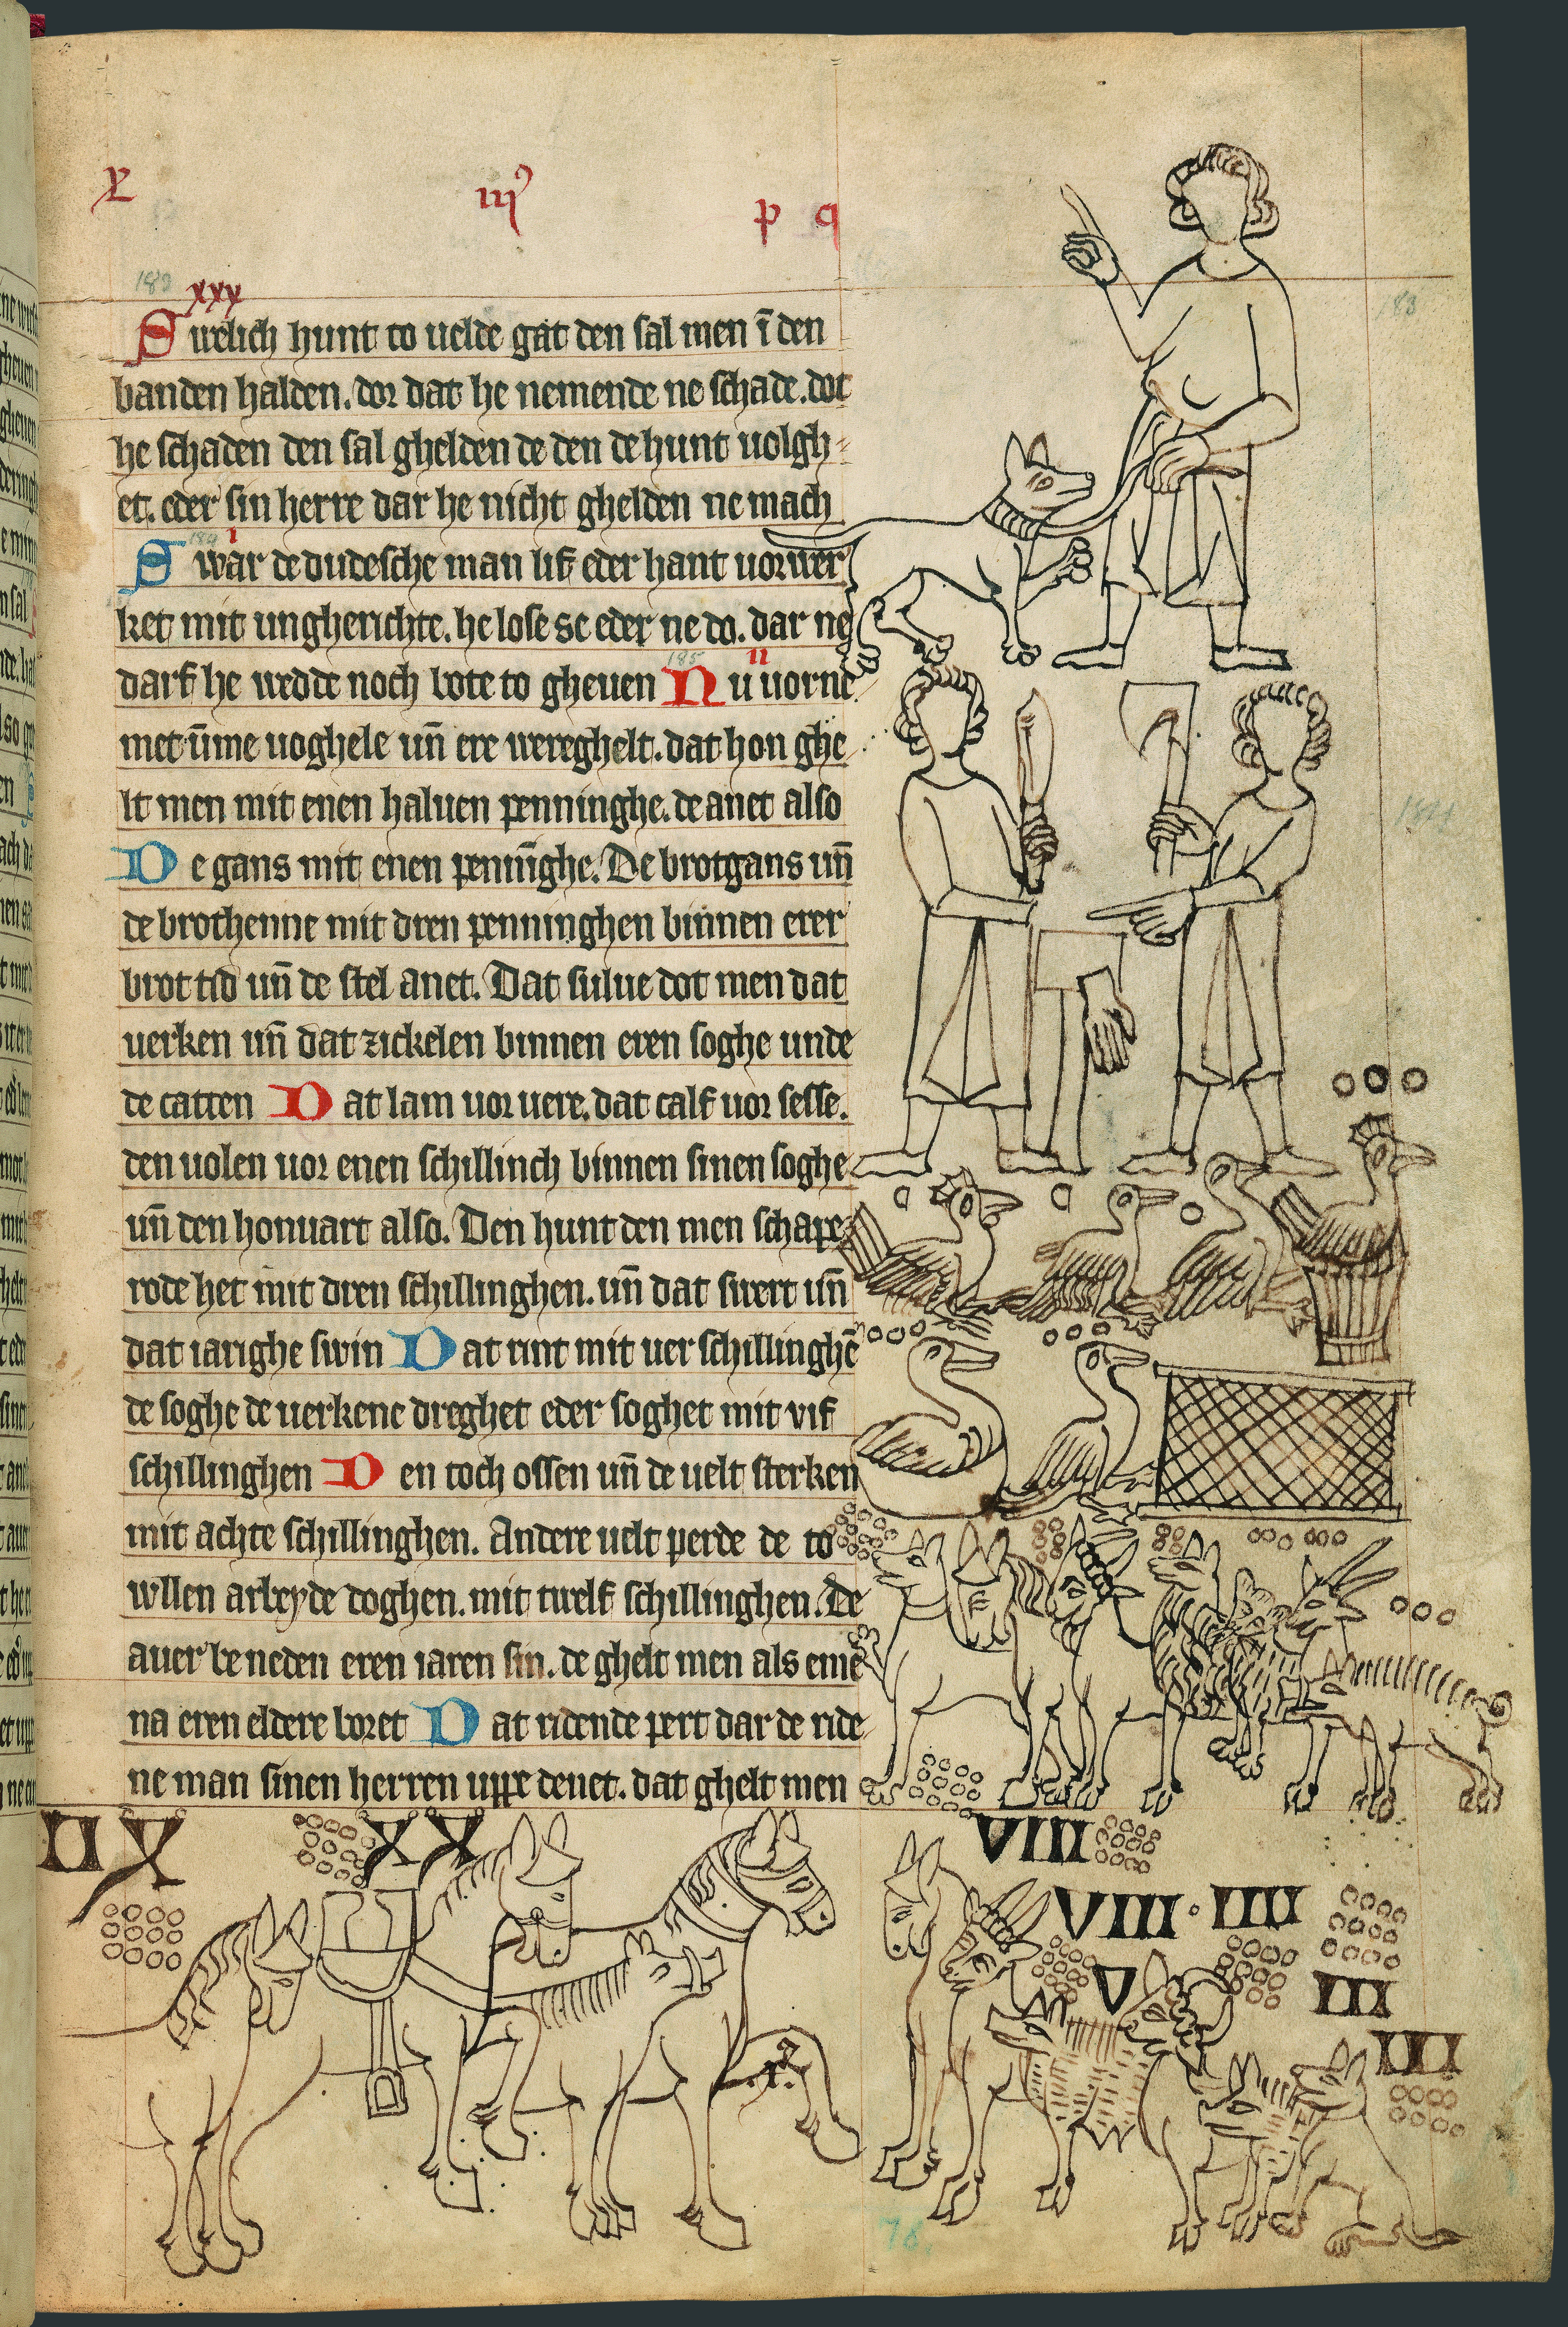 x
iij
p q
183
xxx
Swelich hunt to uelde gat den sal men ī den
banden halden. dor dat he nemende ne schade. dot
he schaden den sal ghelden de den de hunt uolgh⸗
et. eder sin herre dar he nicht ghelden ne mach
184 i
Swar de dudesche man lif eder hant uorwer
ket mit ungherichte. he lose se eder ne do. dar ne
185 ii
darf he wedde noch bote to gheuen Nu uorne
met ūme uoghele uñ ere wereghelt. dat hon ghe
lt men mit enen haluen penninghe. de anet also
De gans mit enen pennīghe. De brotgans uñ
de brothenne mit dren penninghen binnen erer
brot tid uñ de stel anet. Dat sulue dot men dat
uerken uñ dat zickelen binnen eren soghe unde
de catten Dat lam uor uere. dat calf uor sesse.
den uolen uor enen schillinch binnen sinen soghe
uñ den honuart also. Den hunt den men schape
rode het mit dren schillinghen. uñ dat swert uñ
dat iarighe swin Dat rint mit uer schillinghē
de soghe de uerkene dreghet eder soghet mit vif
schillinghen Den toch ossen uñ de uelt sterken
mit achte schillinghen. Andere uelt perde de to
wllen arbeyde doghen. mit twelf schillinghen. De
auer beneden eren iaren sin. de ghelt men als eme
na eren eldere boret Dat ridende pert dar de ride
ne man sinen herren uppe denet. dat ghelt men
183
184
II X
XX
VIII
VIII · IIII
V
III
III
76